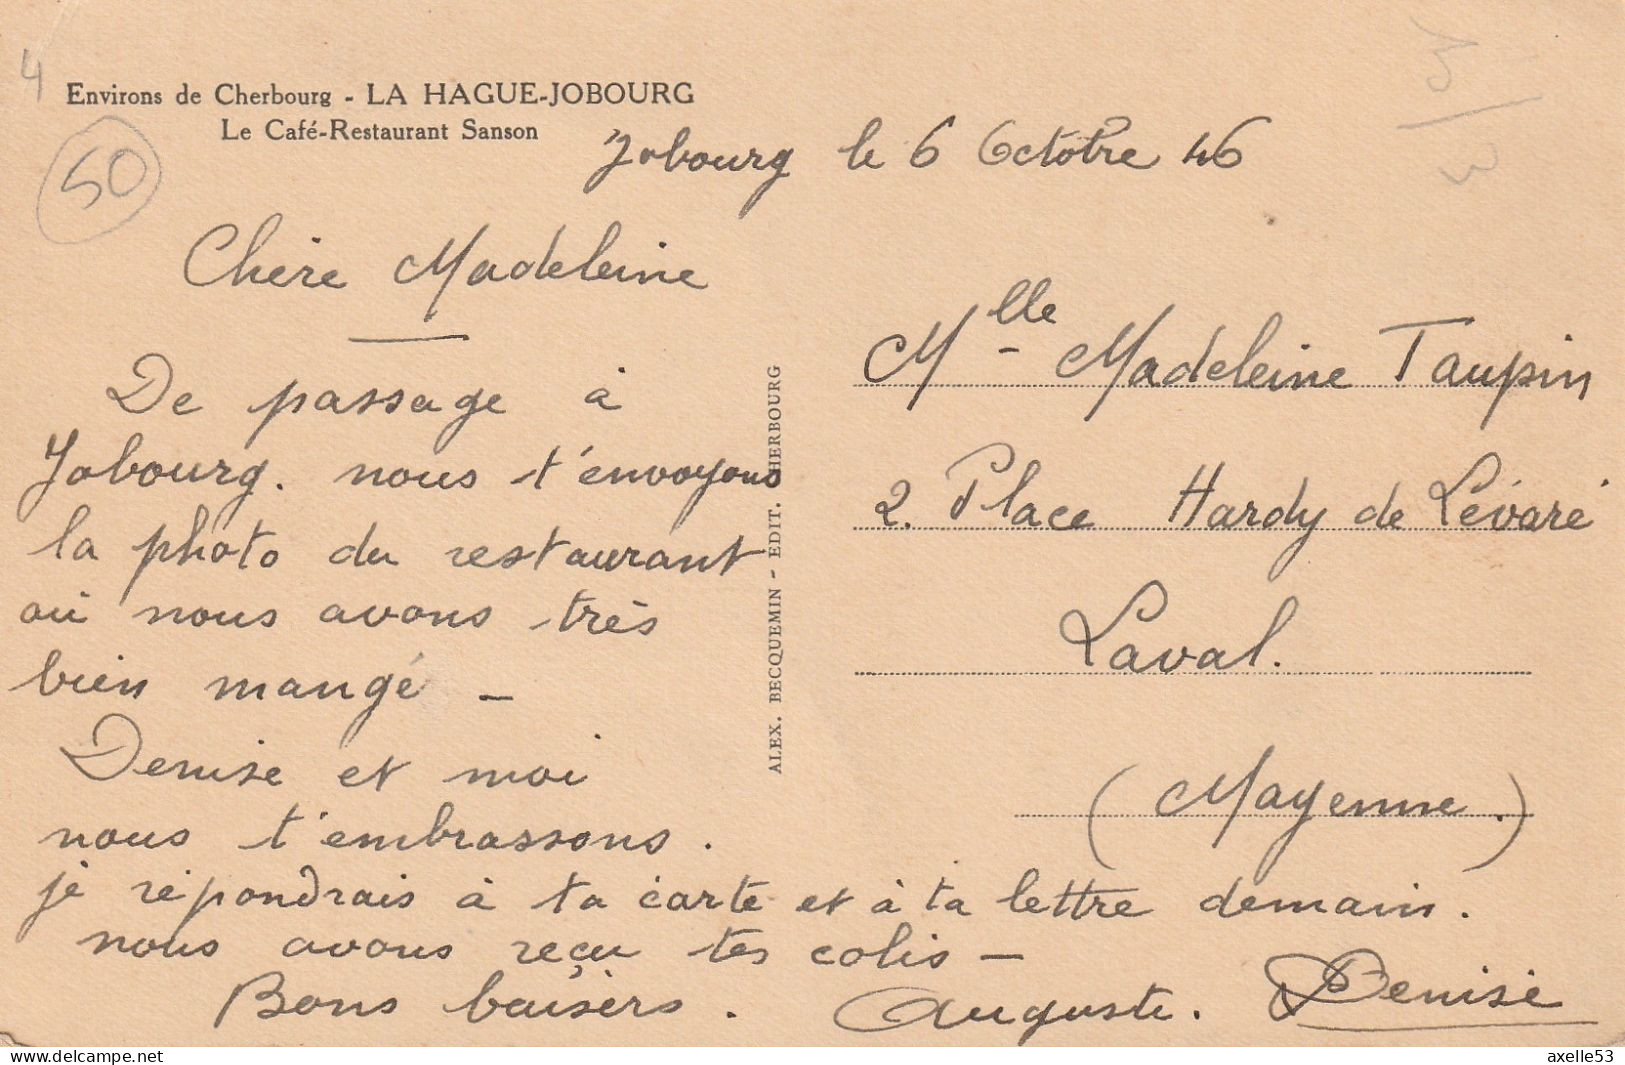 4
Environs de Cherbourg - LA HAGUE-JOBOURG
Le Café-Restaurant Sanson
50
Jobourg le 6 Octobre 46
Chère Madeleine
De passage à
Jobourg. nous t'envoyons
la photo du restaurant
où nous avons très
bien mangé -
Denise et moi
nous t'embrassons.
je répondrais à ta carte et à ta lettre demain.
nous avons reçu tes colis -
Bons baisers. Auguste. Denise
ALEX. BECQUEMIN - EDIT. CHERBOURG
Mlle Madeleine Taupin
2. Place Hardy de Lévaré
Laval.
(Mayenne.)
delcampe.net
axelle53